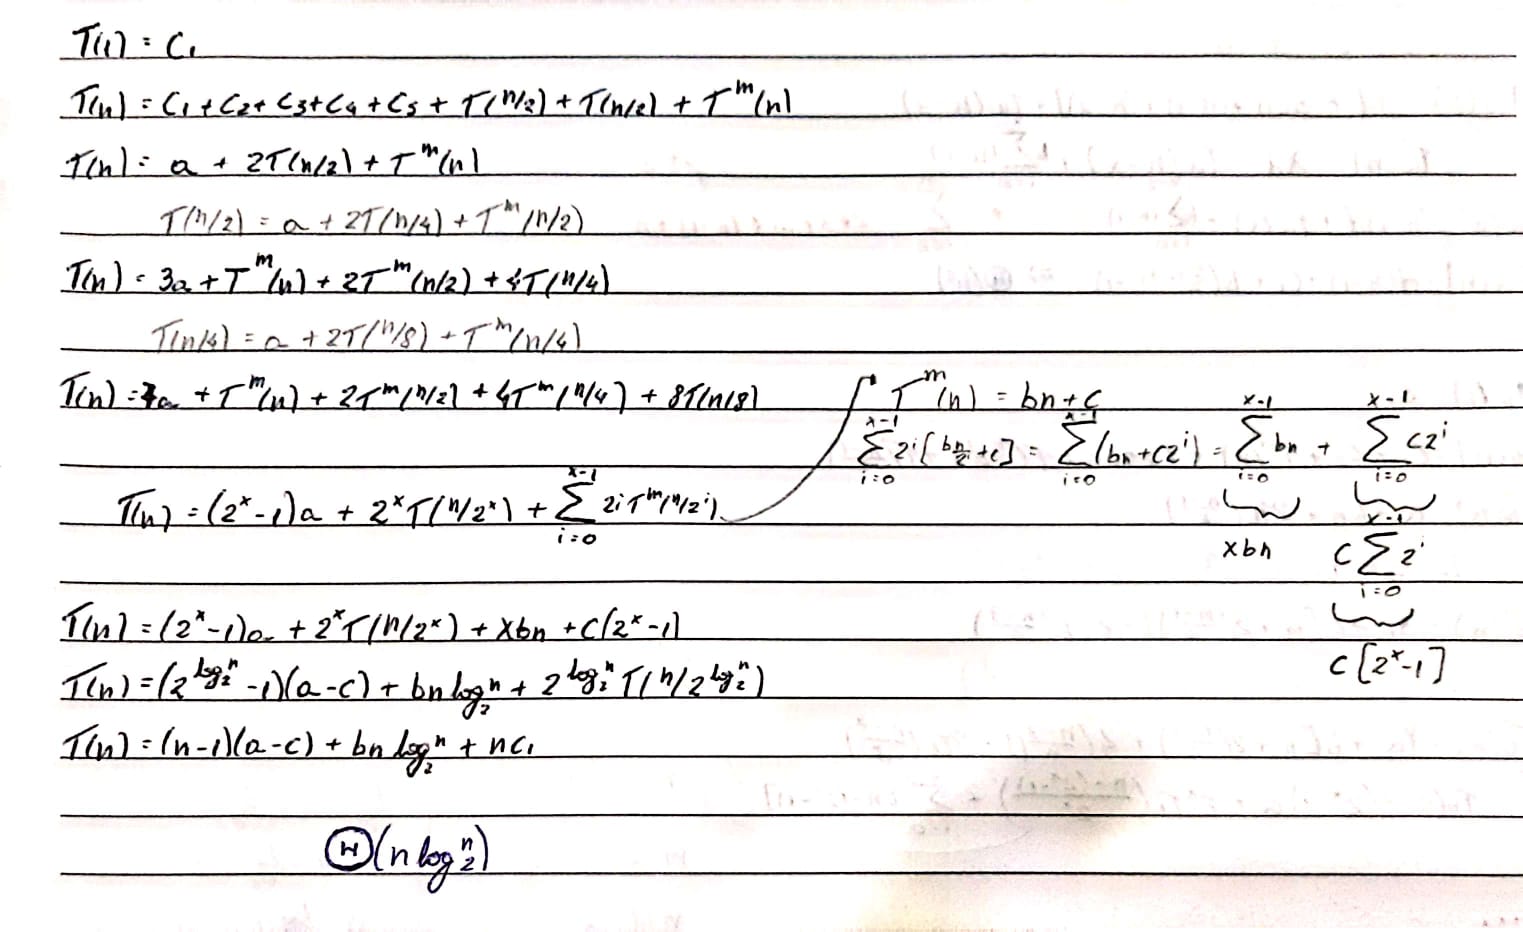 T(1) = C₁
T(n) = C₁ + C₂ + C₃ + C₄ + C₅ + T(n/2) + T(n/2) + Tᵐ(n)
T(n) = a + 2T(n/2) + Tᵐ(n)
T(n/2) = a + 2T(n/4) + Tᵐ(n/2)
T(n) = 3a + Tᵐ(n) + 2Tᵐ(n/2) + 4T(n/4)
T(n/4) = a + 2T(n/8) + Tᵐ(n/4)
T(n) = 7a + Tᵐ(n) + 2Tᵐ(n/2) + 4Tᵐ(n/4) + 8T(n/8)
Tᵐ(n) = bn + c
∑_{i=0}^{x-1} 2ⁱ[bn/2ⁱ + c] = ∑_{i=0}^{x-1} (bn + c2ⁱ) = ∑_{i=0}^{x-1} bn + ∑_{i=0}^{x-1} c2ⁱ
T(n) = (2ˣ-1)a + 2ˣT(n/2ˣ) + ∑_{i=0}^{x-1} 2ⁱTᵐ(n/2ⁱ)
xbn C∑_{i=0}^{x-1} 2ⁱ
T(n) = (2ˣ-1)a + 2ˣT(n/2ˣ) + xbn + c(2ˣ-1)
C[2ˣ-1]
T(n) = (2^{log₂ⁿ} -1)(a-c) + bn log₂ⁿ + 2^{log₂ⁿ} T(n/2^{log₂ⁿ})
T(n) = (n-1)(a-c) + bn log₂ⁿ + nC₁
Θ(n log₂ⁿ)